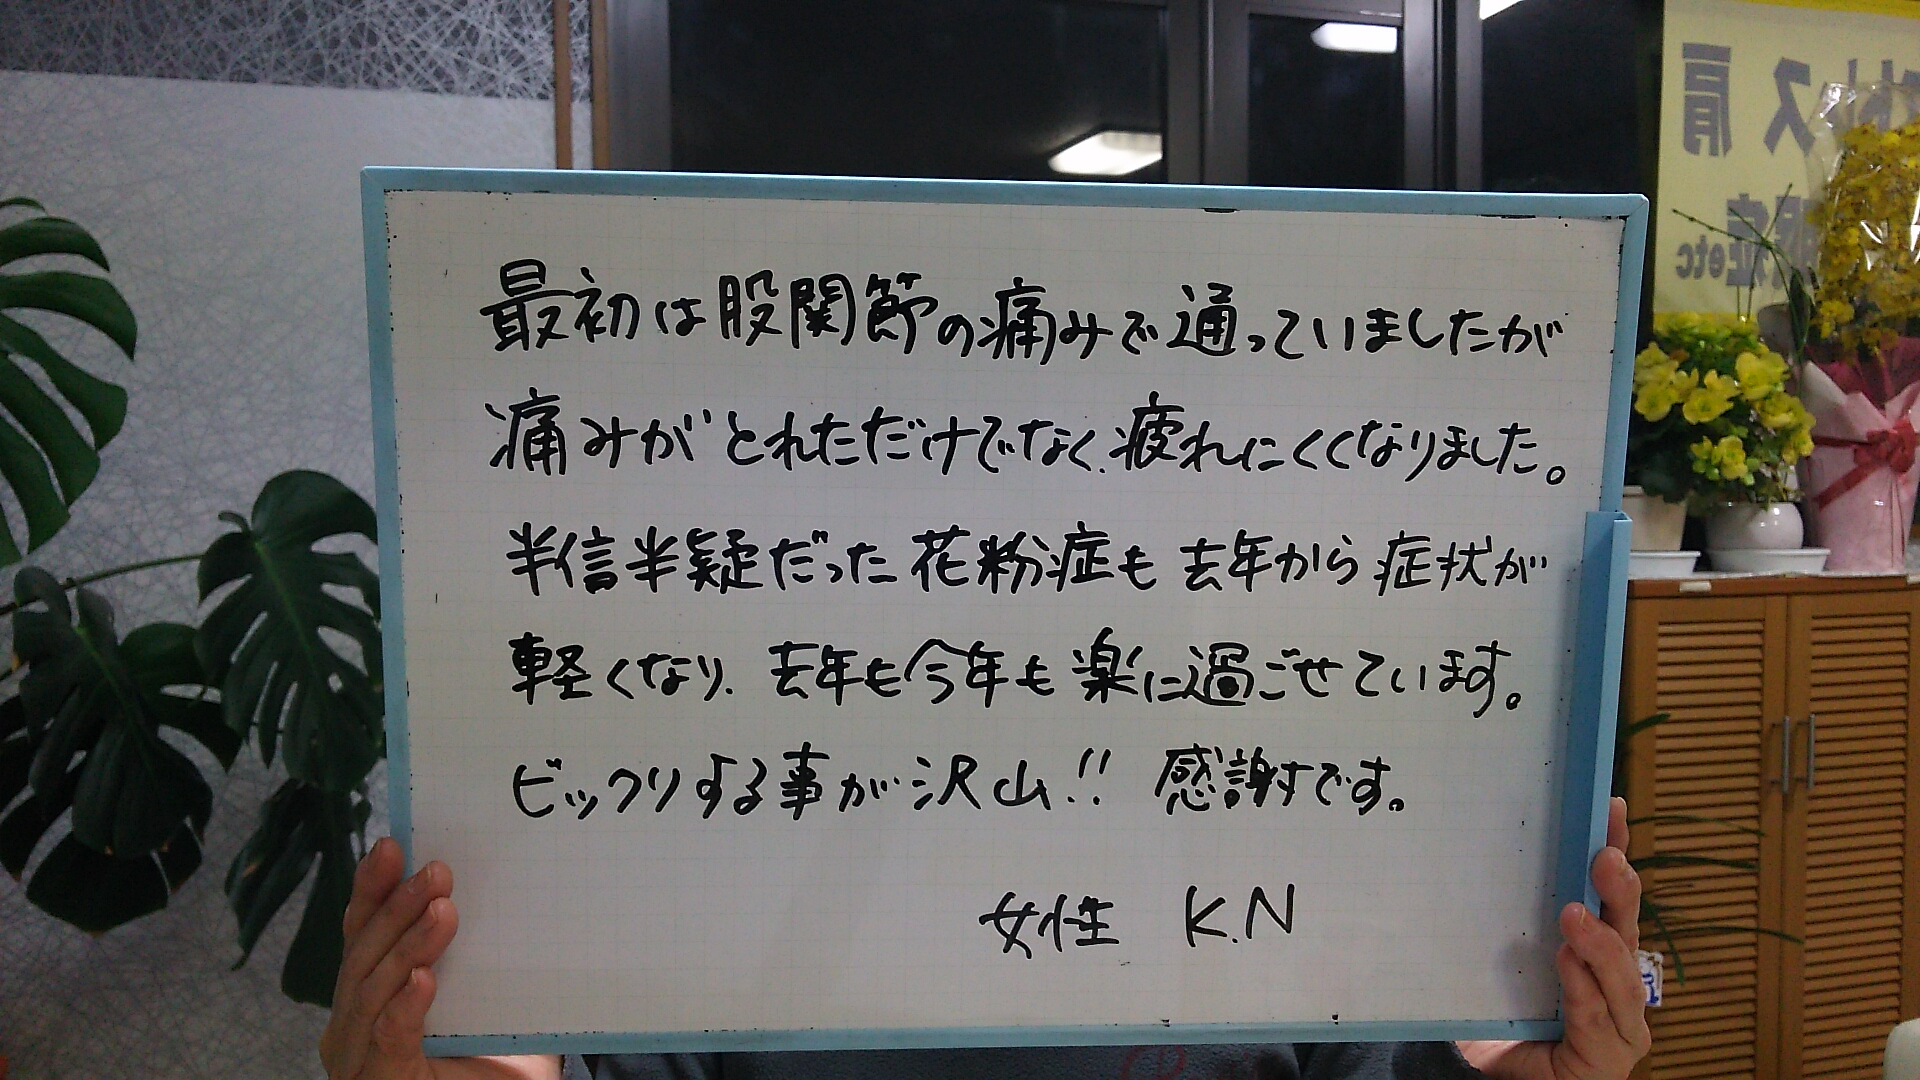 最初は股関節の痛みで通っていましたが
痛みがとれただけでなく、疲れにくくなりました。
半信半疑だった花粉症も去年から症状が
軽くなり、去年も今年も楽に過ごせています。
ビックリする事が沢山!! 感謝です。
女性 K.N
ス 肩
症etc